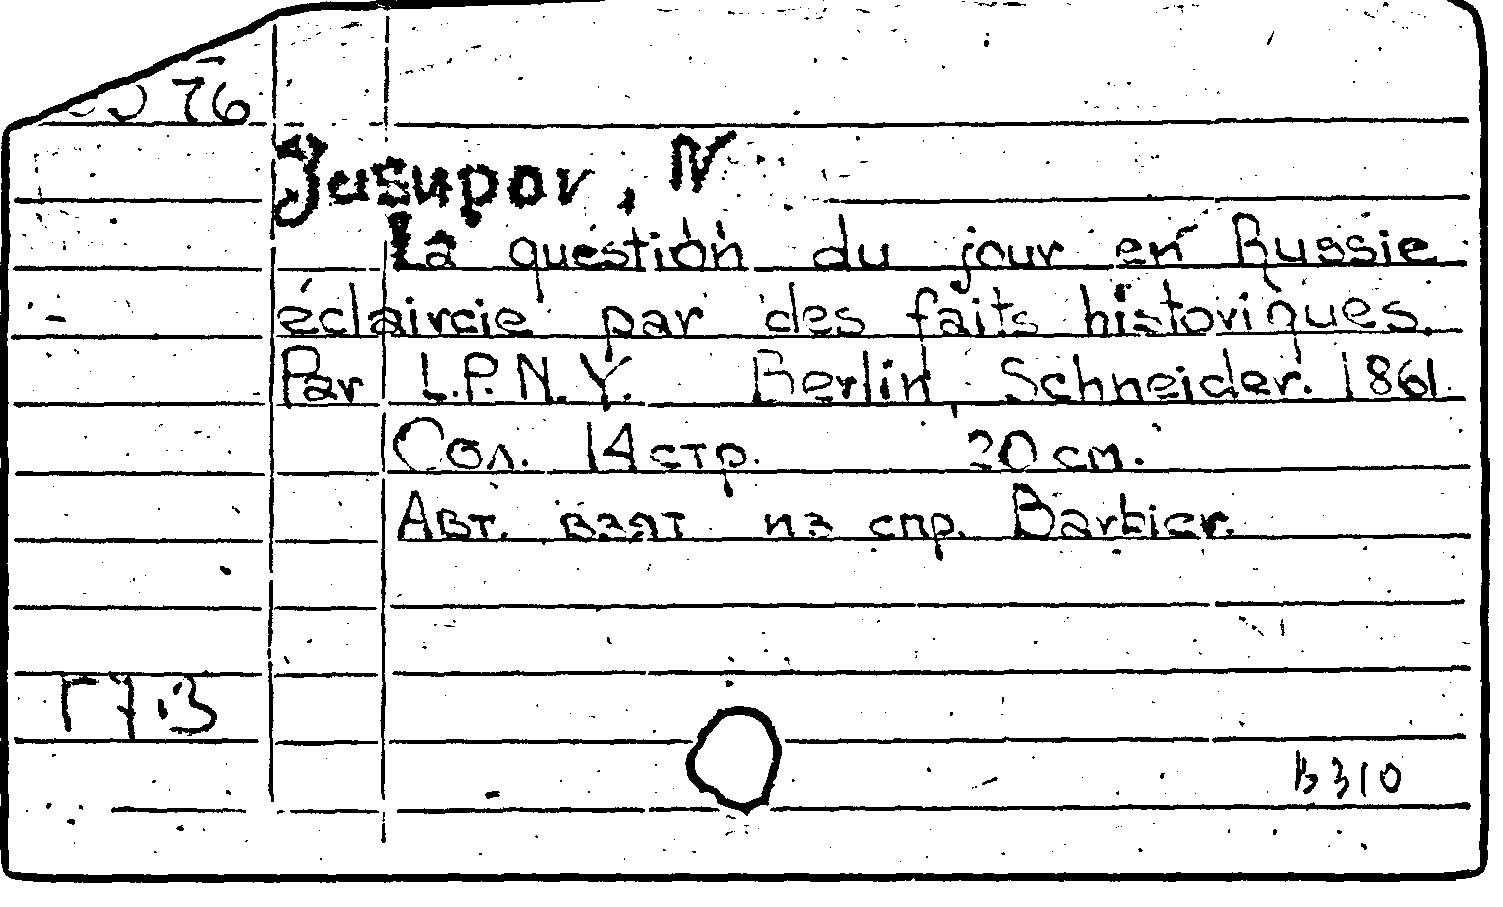 76
Jusupov, N
La question du jour en Russie
éclaircie par des faits historiques.
Par L.P.N.Y. Berlin, Schneider. 1861.
Сол. 14 стр. 20 см.
Авт. взят из спр. Barbier.
Г7.3
В310